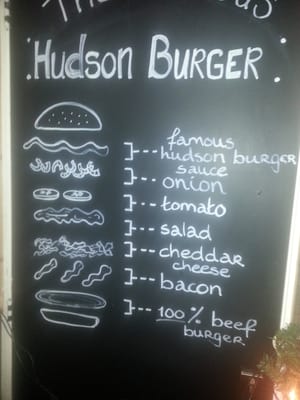 Hudson BURGER.
famous
hudson burger
sauce
onion
tomato
salad
cheddar
cheese
bacon
100% beef
burger